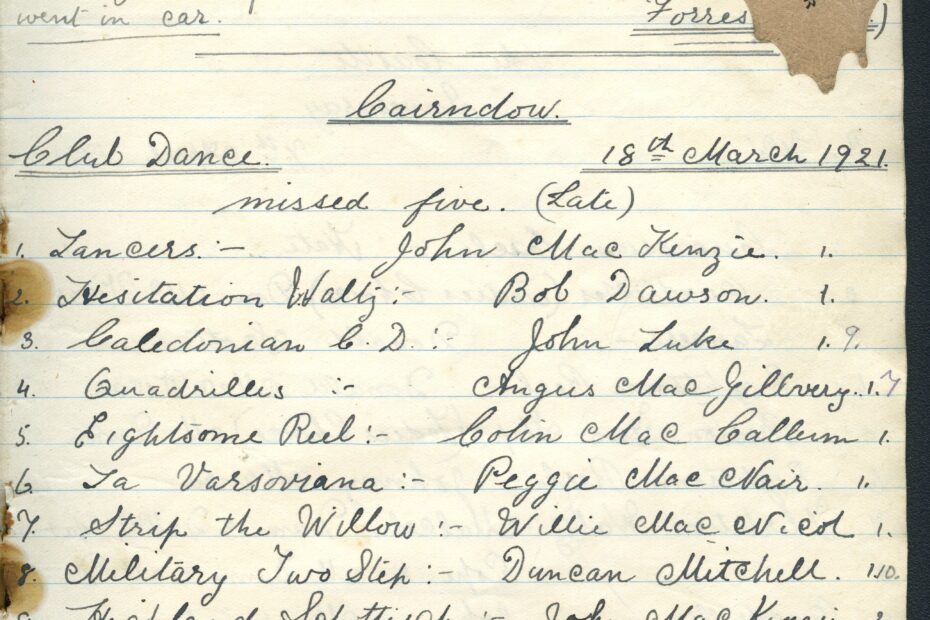 went in car. Forres )
Cairndow.
Club Dance. 18th March 1921.
missed five. (Late)
1. Lancers :- John MacKenzie. 1.
2. Hesitation Waltz :- Bob Dawson. 1.
3. Caledonian C. D. :- John Luke 1. 9.
4. Quadrilles :- Angus MacGillvery. 1. 7
5. Eightsome Reel :- Colin MacCallum 1.
6. La Varsoviana :- Peggie MacNair. 1.
7. Strip the Willow :- Willie MacNicol 1.
8. Military Two Step :- Duncan Mitchell. 1.10.
9. Highland Schottische :- John MacKenzie 2